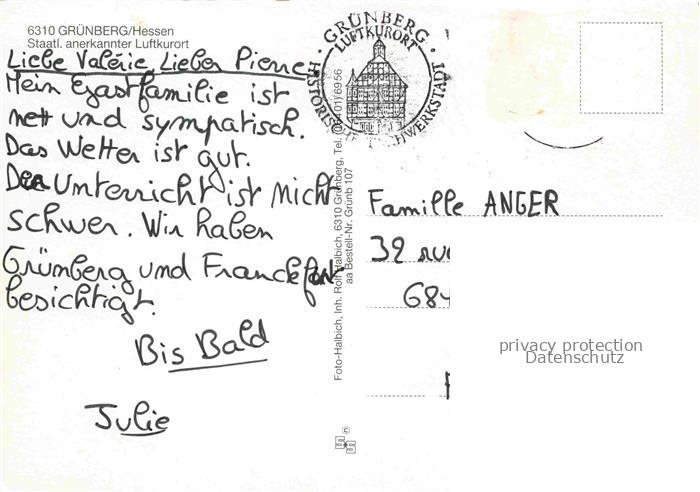 6310 GRÜNBERG/Hessen
Staatl. anerkannter Luftkurort
Liebe Valérie, Lieber Pierre
Mein Gastfamilie ist
nett und sympatisch.
Das Wetter ist gut.
Der Unterricht ist nicht
schwer. Wir haben
Grümberg und Franckfort
besichtigt.
Bis Bald
Julie
Foto-Halbich, Inh. Rolf Halbich, 6310 Grünberg, Tel.
aa Bestell-Nr. Grünb 107
· GRÜNBERG ·
LUFTKURORT
Famille ANGER
39 rue
684
privacy protection
Datenschutz
©